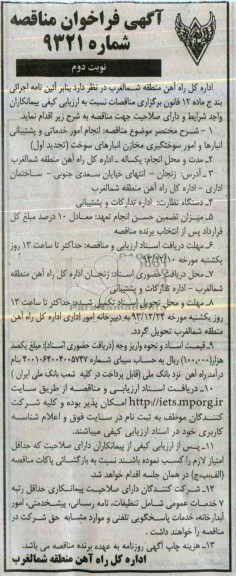 آگهی فراخوان مناقصه
شماره ۹۳۲۱
نوبت دوم
اداره کل راه آهن منطقه شمالغرب در نظر دارد بنابر آئین نامه اجرائی
بند ج ماده ۱۲ قانون برگزاری مناقصات نسبت به ارزیابی کیفی پیمانکاران
واجد شرایط و دارای صلاحیت جهت مناقصه به شرح زیر اقدام نماید.
۱- شرح مختصر موضوع مناقصه: انجام امور خدماتی و پشتیبانی
انبارها و امور سوختگیری مخازن انبارهای سوخت (تجدید اول)
۲- مدت و محل انجام: یکساله – اداره کل راه آهن منطقه شمالغرب
۳- آدرس: زنجان – انتهای خیابان سعدی جنوبی – ساختمان
اداری – اداره کل راه آهن منطقه شمالغرب
۴- دستگاه نظارت: اداره تدارکات و پشتیبانی
۵- میزان تضمین حسن انجام تعهد: معادل ۱۰ درصد مبلغ کل
قرارداد پس از انتخاب برنده مناقصه
۶- مهلت دریافت اسناد ارزیابی و مناقصه: حداکثر تا ساعت ۱۳ روز
یکشنبه مورخه ۹۳/۱۲/۱۰
۷- محل دریافت حضوری اسناد: زنجان اداره کل راه آهن منطقه
شمالغرب – اداره تدارکات و پشتیبانی
۸- مهلت و محل تحویل اسناد تکمیل شده: حداکثر تا ساعت ۱۳
روز یکشنبه مورخه ۹۳/۱۲/۲۴ به دبیرخانه امور اداری اداره کل راه آهن
منطقه شمالغرب تحویل گردد.
۹- قیمت اسناد و نحوه واریز وجه (دریافت حضوری اسناد): مبلغ یکصد
هزار (۱۰۰,۰۰۰) ریال به حساب سیبای شماره ۴۰۰۱۰۶۴۰۰۴۰۰۵۷۴۷ بنام
درآمد راه آهن نزد بانک ملی (قابل پرداخت در کلیه شعب بانک ملی ایران)
۱۰- دریافت اسناد ارزیابی و مناقصه از طریق سایت
http://iets.mporg.ir امکان پذیر بوده و کلیه شرکت
کنندگان موظف به ثبت نام در سایت فوق و اعلام شناسه
کاربری خود در اسناد ارزیابی کیفی میباشند.
۱۱- پس از ارزیابی کیفی از پیمانکاران دارای صلاحیت که حداقل
امتیاز لازم را کسب نموده باشند نسبت به بازگشائی پاکات مناقصه
(الف،ب،ج) در همان جلسه اقدام خواهد شد.
۱۲- شرکت کنندگان دارای صلاحیت پیمانکاری حداقل رتبه
۷ خدمات عمومی شامل تنظیفات، نامه رسانی، پیشخدمتی، امور
آبدارخانه، خدمات پاسخگویی تلفنی و موارد مشابه حق شرکت در
مناقصه را خواهند داشت.
۱۳- هزینه چاپ آگهی روزنامه به عهده برنده مناقصه می باشد.
اداره کل راه آهن منطقه شمالغرب